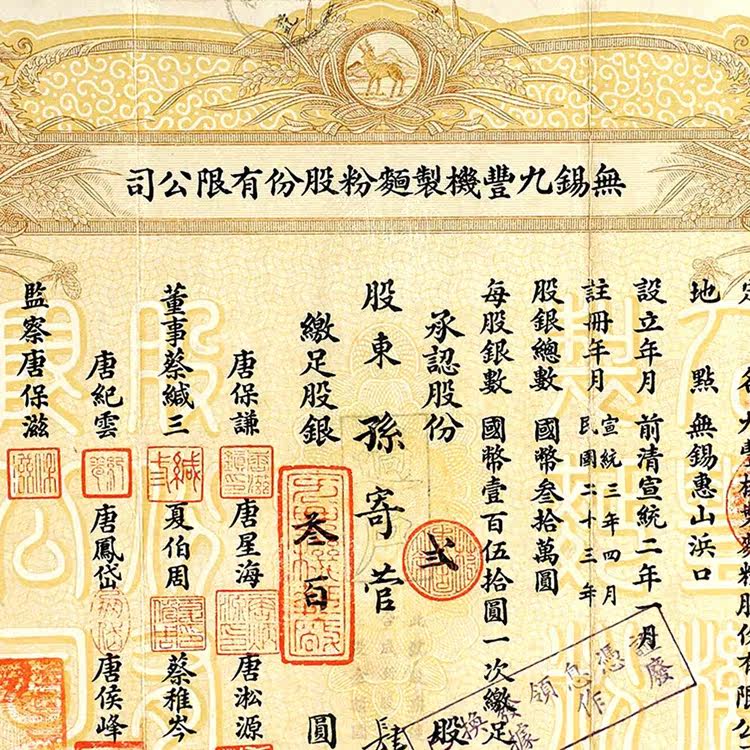 無錫九豐機製麵粉股份有限公司
地點 無錫惠山浜口
設立年月 前清宣統二年一月
註冊年月 宣統三年四月 民國二十三年
股銀總數 國幣叁拾萬圓
每股銀數 國幣壹百伍拾圓一次繳足
承認股份 弍 股
股東 孫寄萱
繳足股銀 叁百 圓
唐保謙 唐星海 唐淞源
董事蔡緘三 夏伯周 蔡稚岑
唐紀雲 唐鳳岱 唐侯峰
監察唐保滋
領息憑
作廢